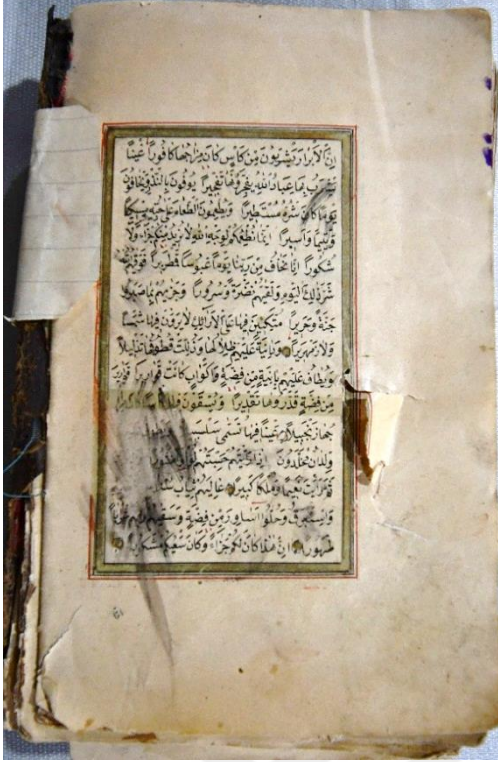 اِنَّ الْاَبْرَارَ يَشْرَبُونَ مِنْ كَاْسٍ كَانَ مِزَاجُهَا كَافُورًا عَيْنًا
يَشْرَبُ بِهَا عِبَادُ اللّٰهِ يُفَجِّرُونَهَا تَفْجِيرًا يُوفُونَ بِالنَّذْرِ وَيَخَافُونَ
يَوْمًا كَانَ شَرُّهُ مُسْتَطِيرًا وَيُطْعِمُونَ الطَّعَامَ عَلٰى حُبِّهِ مِسْكِينًا
وَيَتِيمًا وَاَسِيرًا اِنَّمَا نُطْعِمُكُمْ لِوَجْهِ اللّٰهِ لَا نُرِيدُ مِنْكُمْ جَزَاءً وَلَا
شُكُورًا اِنَّا نَخَافُ مِنْ رَبِّنَا يَوْمًا عَبُوسًا قَمْطَرِيرًا فَوَقٰيهُمُ
شَرَّ ذٰلِكَ الْيَوْمِ وَلَقّٰيهُمْ نَضْرَةً وَسُرُورًا وَجَزٰيهُمْ بِمَا صَبَرُوا
جَنَّةً وَحَرِيرًا مُتَّكِئِينَ فِيهَا عَلَى الْاَرَائِكِ لَا يَرَوْنَ فِيهَا شَمْسًا
وَلَا زَمْهَرِيرًا وَدَانِيَةً عَلَيْهِمْ ظِلَالُهَا وَذُلِّلَتْ قُطُوفُهَا تَذْلِيلًا
وَيُطَافُ عَلَيْهِمْ بِاٰنِيَةٍ مِنْ فِضَّةٍ وَاَكْوَابٍ كَانَتْ قَوَارِيرَا قَوَارِيرَ
مِنْ فِضَّةٍ قَدَّرُوهَا تَقْدِيرًا وَيُسْقَوْنَ فِيهَا كَاْسًا كَانَ
مِزَاجُهَا زَنْجَبِيلًا عَيْنًا فِيهَا تُسَمّٰى سَلْسَبِيلًا
وِلْدَانٌ مُخَلَّدُونَ اِذَا رَاَيْتَهُمْ حَسِبْتَهُمْ لُؤْلُؤًا
ثَمَّ رَاَيْتَ نَعِيمًا وَمُلْكًا كَبِيرًا عَالِيَهُمْ ثِيَابُ
وَاِسْتَبْرَقٌ وَحُلُّوا اَسَاوِرَ مِنْ فِضَّةٍ وَسَقٰيهُمْ رَبُّهُمْ
طَهُورًا اِنَّ هٰذَا كَانَ لَكُمْ جَزَاءً وَكَانَ سَعْيُكُمْ مَشْكُورًا
انا